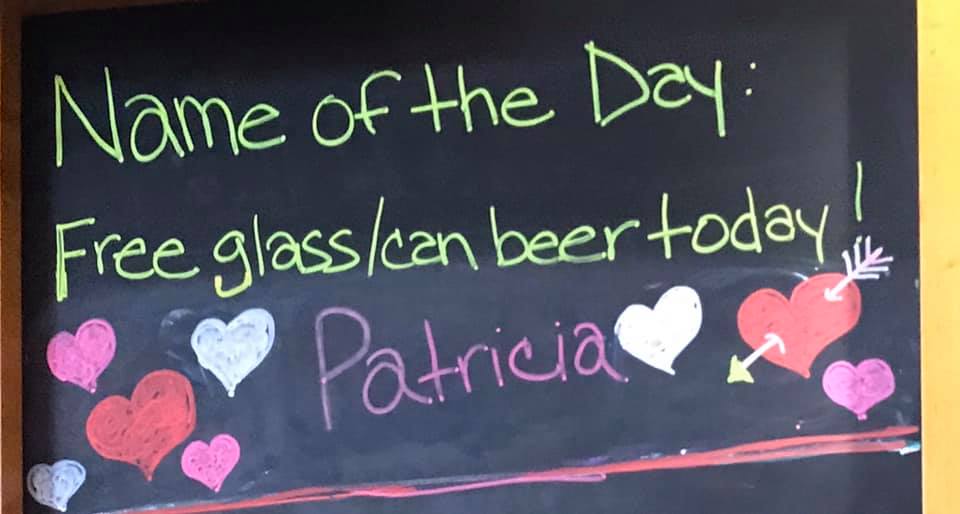 Name of the Day:
Free glass/can beer today!
Patricia